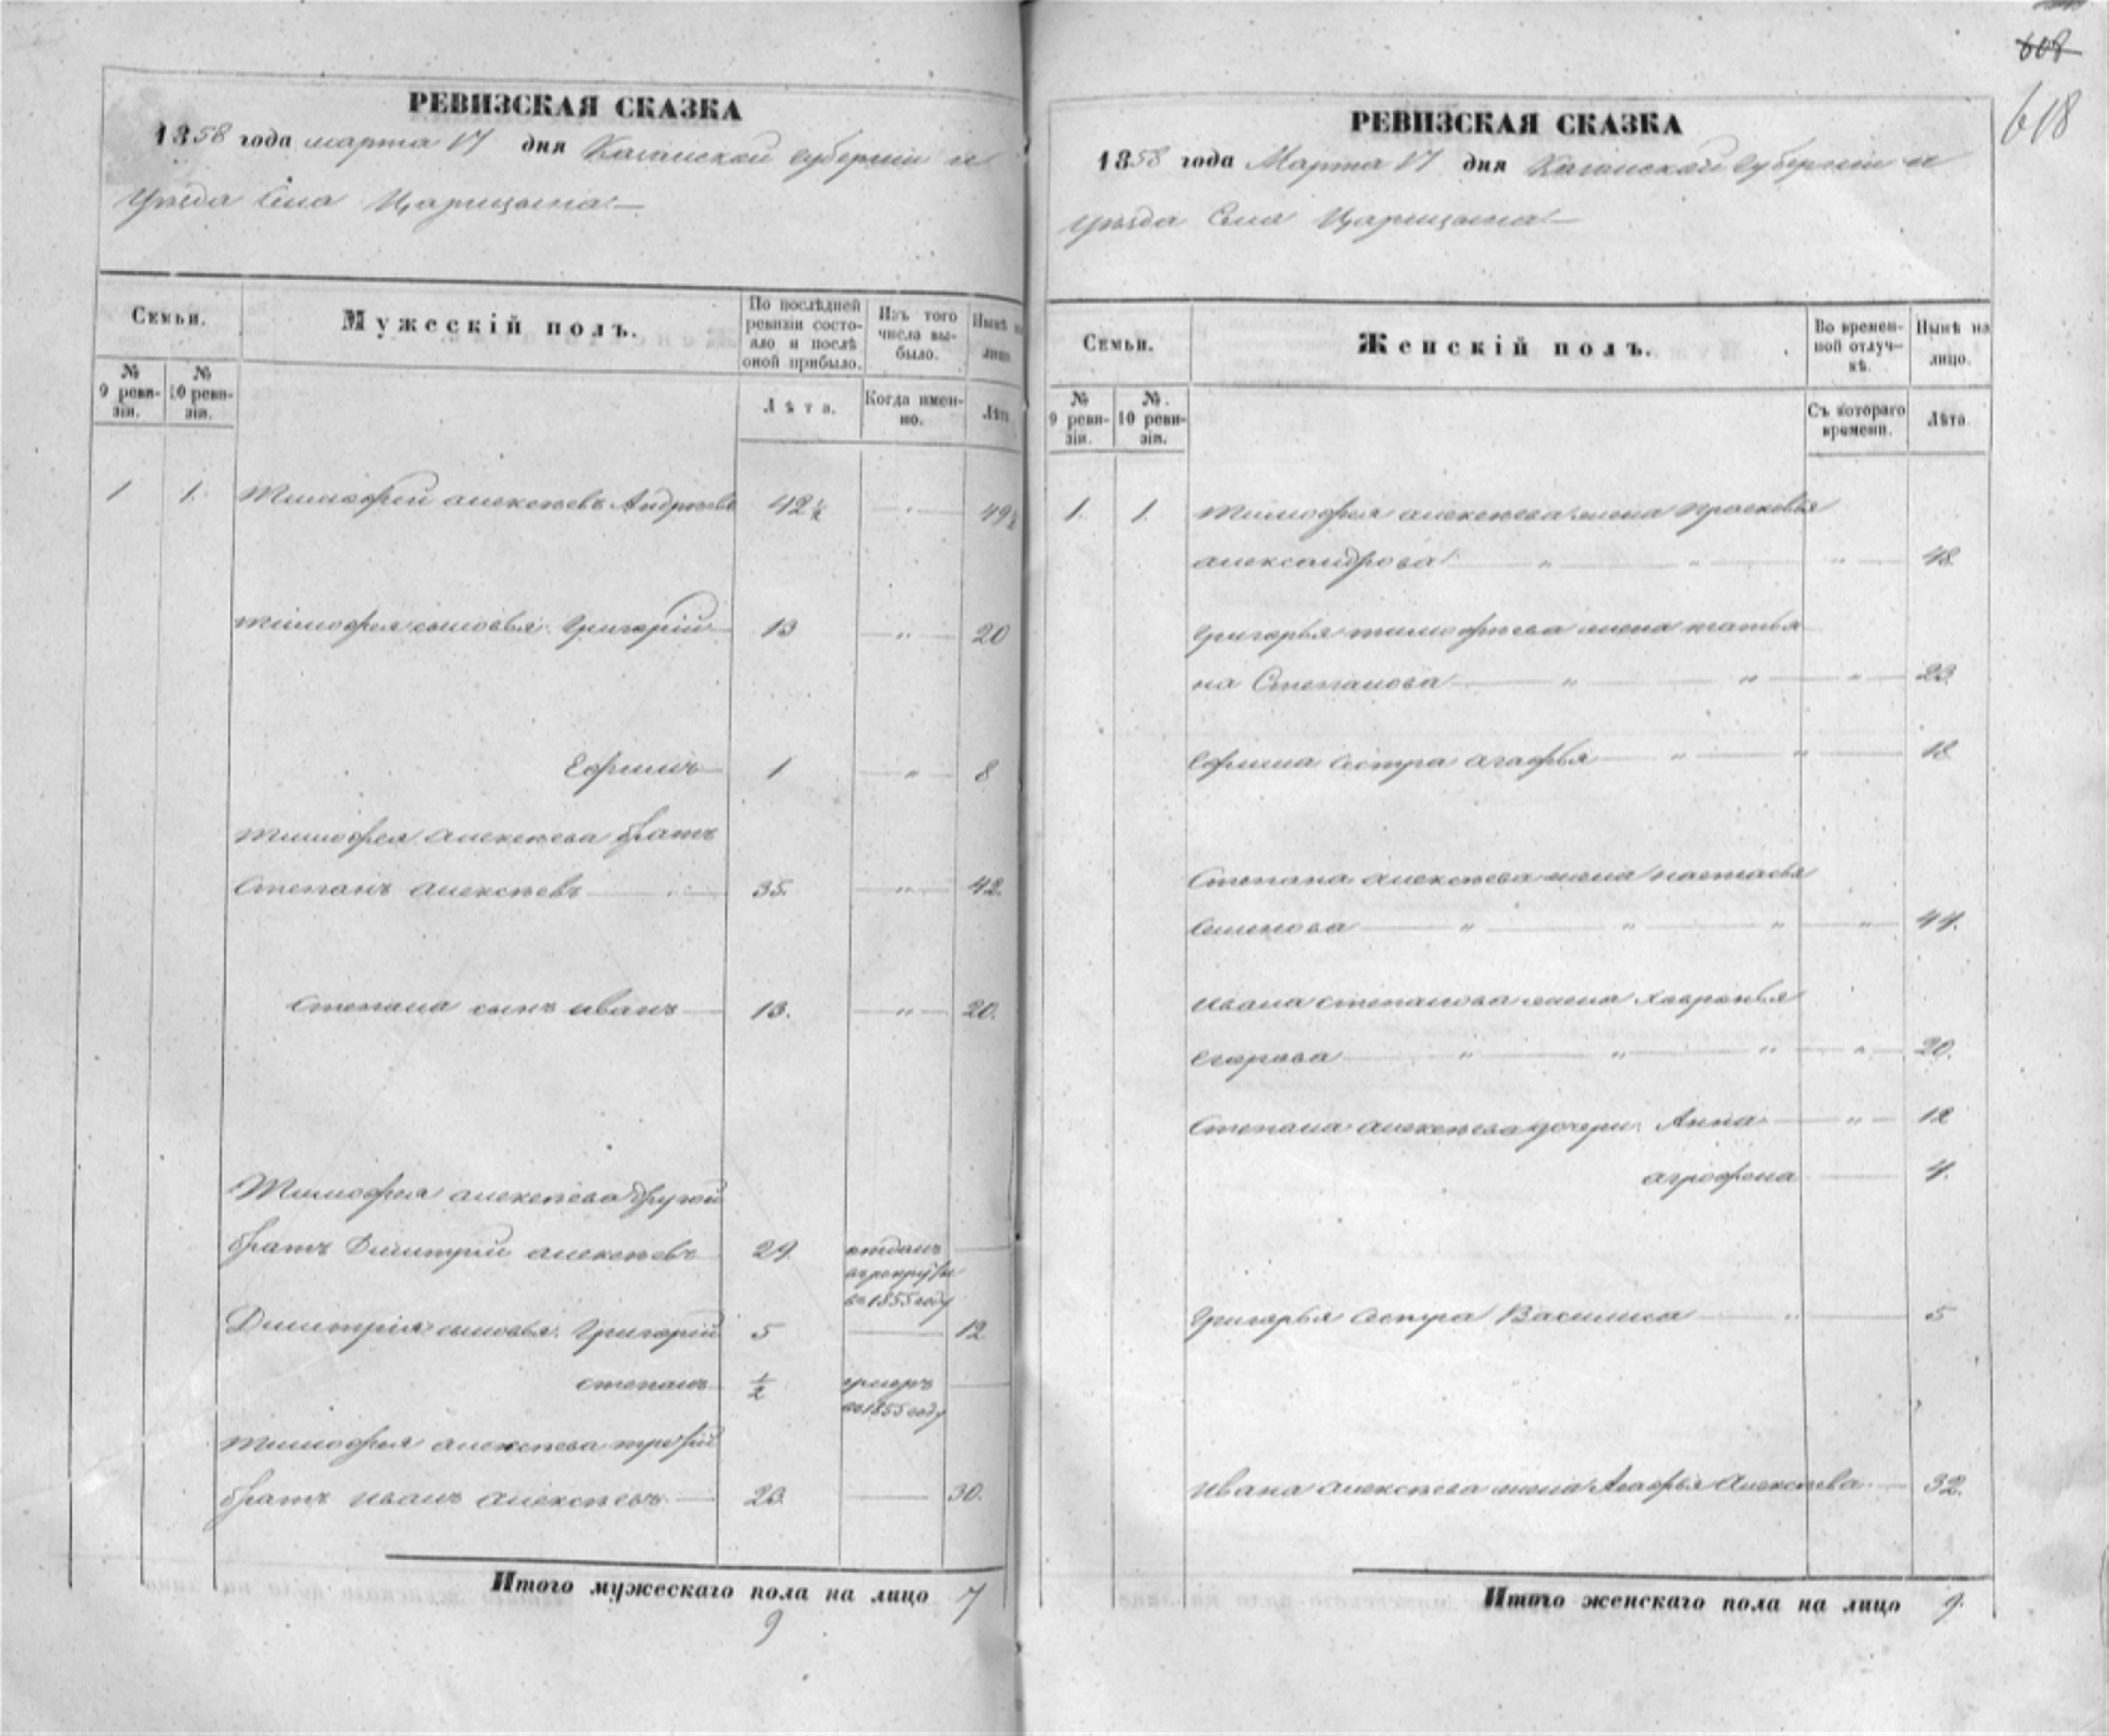 608
618
РЕВИЗСКАЯ СКАЗКА
1858 года марта 17 дня Казанской губернiи и
уѣзда Села Царицына
Семьи.
Мужескій полъ.
По послѣдней ревизіи состояло и послѣ оной прибыло.
Изъ того числа выбыло.
Нынѣ на лицо.
№ 9 ревизіи.
№ 10 ревизіи.
Лѣта.
Когда именно.
Лѣта.
1 1. Тимофей алексѣевъ Андрѣевъ 42½ 49½
тимофея сыновья Григорій 13 " 20
Ефимъ 1 " 8
тимофея алексѣева братъ
Степанъ алексѣевъ 35. " 42.
Степана сынъ иванъ 13. " 20.
Тимофея алексѣева другой
братъ Димитрий алексѣевъ 29. отданъ
въ рекруты
въ 1855 году
Димитрія сыновья Григорій 5 12
степанъ ½ умеръ
въ 1855 году
тимофея алексѣева третiй
братъ иванъ алексѣевъ 23. 30.
Итого мужескаго пола на лицо 7
9
РЕВИЗСКАЯ СКАЗКА
1858 года Марта 17 дня Казанской губернiи и
уѣзда Села Царицына
Семьи.
Женскій полъ.
Во временной отлучкѣ.
Нынѣ на лицо.
№ 9 ревизіи.
№. 10 ревизіи.
Съ котораго времени.
Лѣта.
1. 1. тимофея алексѣева жена прасковья
александрова " " " 48.
Григорья тимофѣева жена татья
на Степанова " " " 23.
Ефима сестра агафья " " 18.
Степана алексѣева жена настасья
семенова " " " " 44.
ивана степанова жена хавронья
егорова " " " " 20.
Степана алексѣева дочери Анна " 12
агрофена 4.
Григорья сестра Василиса " 5
ивана алексѣева жена Агафья Алексѣева 32.
Итого женскаго пола на лицо 9.